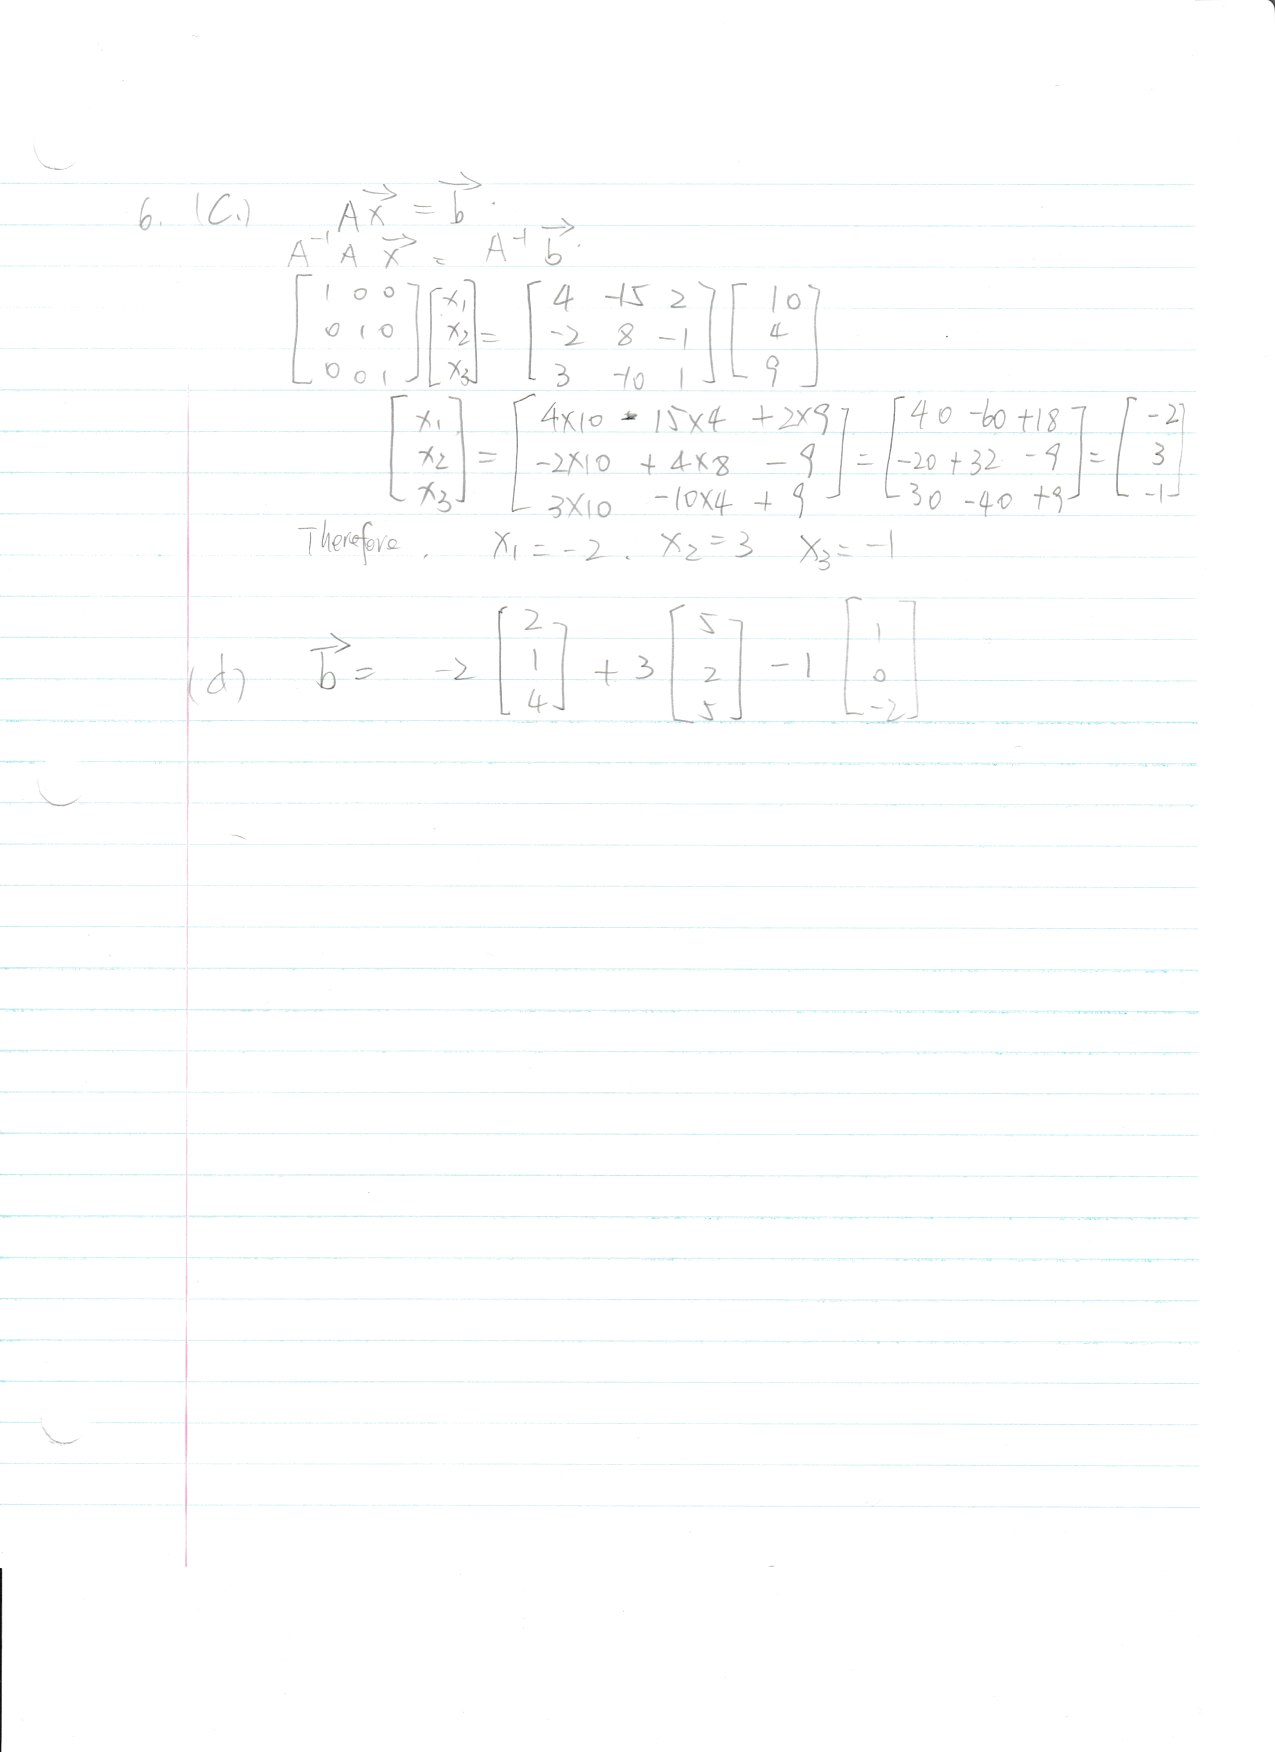 6. (C.) A x⃗ = b⃗.
A⁻¹ A x⃗ = A⁻¹ b⃗.
[1 0 0; 0 1 0; 0 0 1] [x₁; x₂; x₃] = [4 -15 2; -2 8 -1; 3 -10 1] [10; 4; 9]
[x₁; x₂; x₃] = [4×10 - 15×4 + 2×9; -2×10 + 4×8 - 9; 3×10 -10×4 + 9] = [40 -60 +18; -20 +32 -9; 30 -40 +9] = [-2; 3; -1]
Therefore. x₁ = -2. x₂ = 3 x₃ = -1
(d) b⃗ = -2 [2; 1; 4] + 3 [5; 2; 5] - 1 [1; 0; -2]